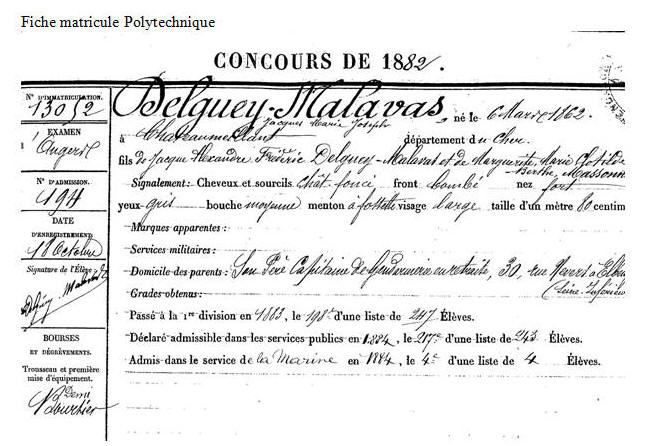 Fiche matricule Polytechnique
CONCOURS DE 1882.
N° D'IMMATRICULATION.
13052
EXAMEN
d'Angers
N° D'ADMISSION.
194
DATE
D'ENREGISTREMENT.
18 Octobre
Signature de l'Élève:
Delguéy Malavas
BOURSES
ET DÉGRÈVEMENTS.
Trousseau et première
mise d'équipement.
Demi
Boursier
Delguey-Malavas, né le 6 Mars 1862.
Jacques Marie Joseph
à Chateaumeillant département du Cher
fils de Jacques Alexandre Fréderic Delguey-Malavas et de Marguerite, Marie Clotilde
Berthe, Massonn
Signalement: Cheveux et sourcils chât. foncé front bombé nez fort
yeux gris bouche moyenne menton à fossette visage large taille d'un mètre 80 centim
Marques apparentes:
Services militaires:
Domicile des parents: Son Père Capitaine de Gendarmerie en retraite, 30, rue Nevers à Elbeu
(Seine-Inférieu
Grades obtenus:
Passé à la 1re division en 1883, le 198e d'une liste de 247 Élèves.
Déclaré admissible dans les services publics en 1884, le 217e d'une liste de 243 Élèves.
Admis dans le service de la Marine en 1884, le 4e d'une liste de 4 Élèves.